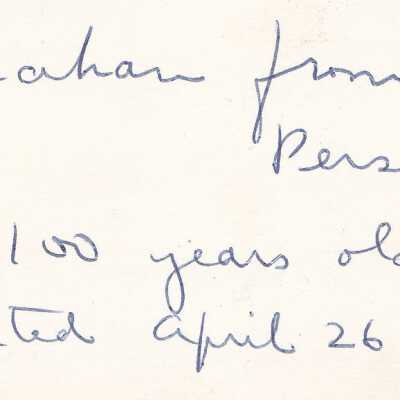 ahan from
Pers
100 years old
ted April 26